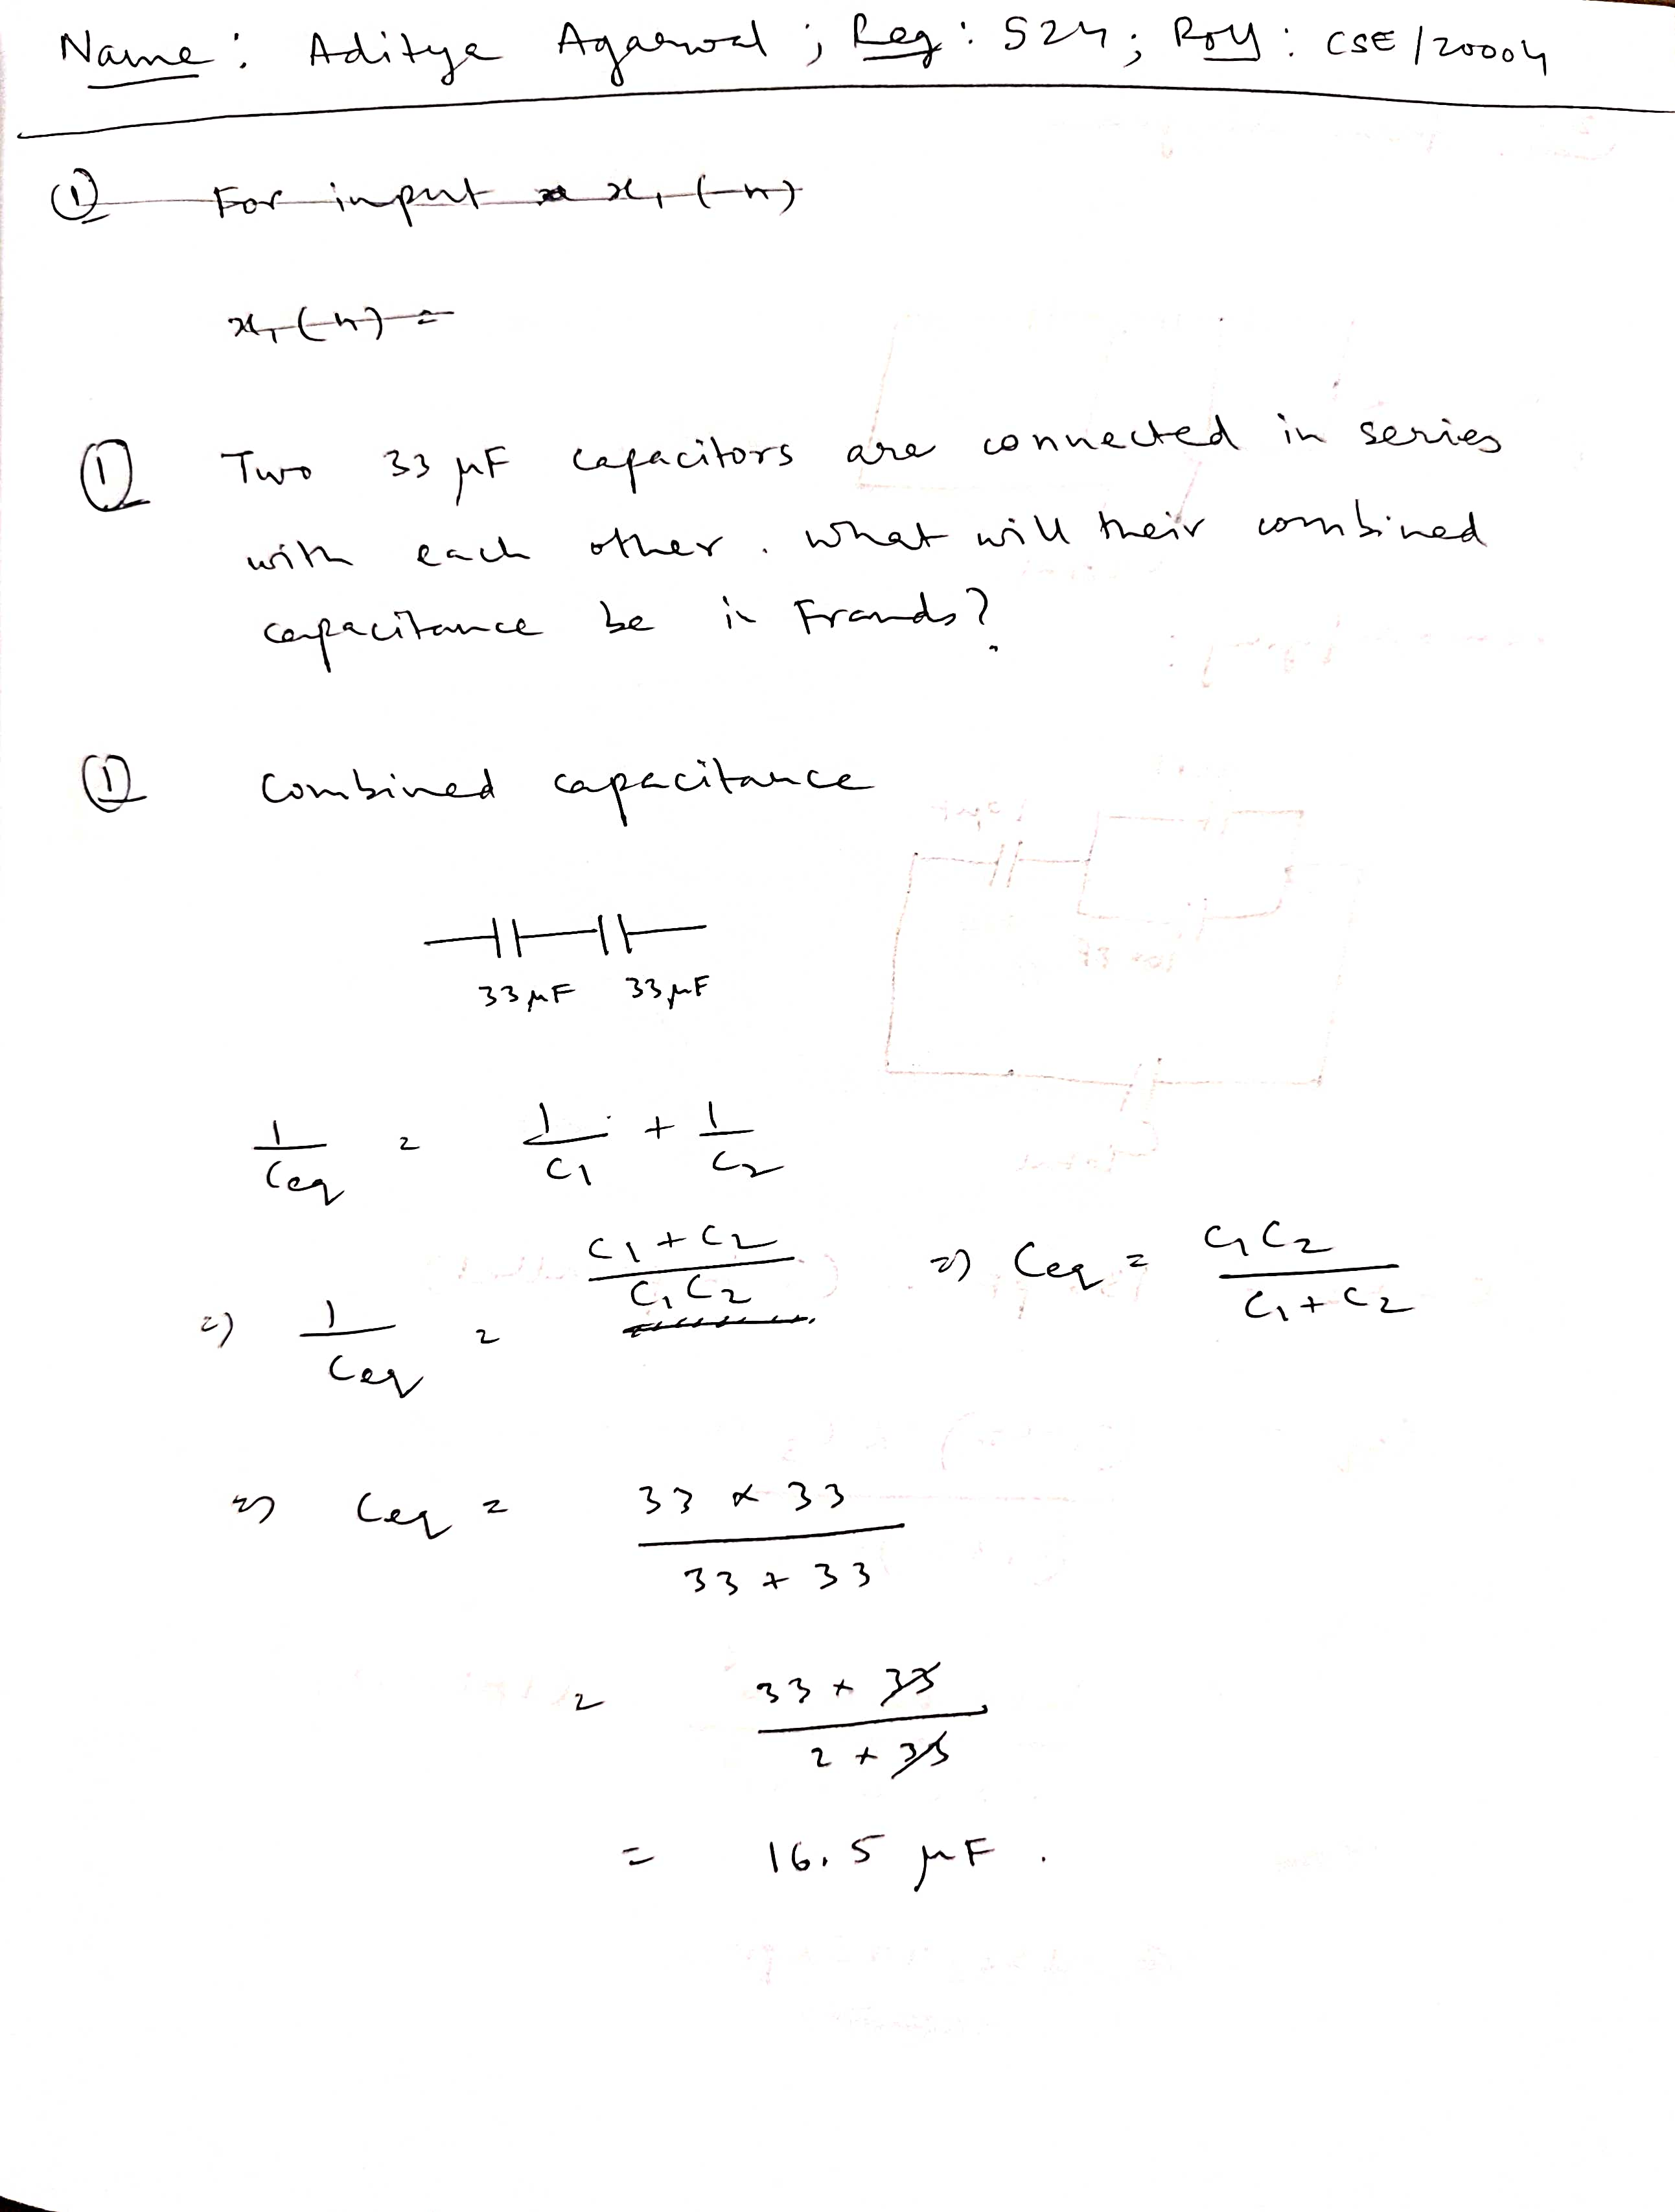 Name: Aditya Agarwal; Reg: 524; Roll: CSE/20004
① For input x₁(-n)
x₁(-n) =
① Two 33 μF capacitors are connected in series
with each other. What will their combined
capacitance be in Frands?
① Combined capacitance
33μF 33μF
1/Ceq = 1/C1 + 1/C2
=) 1/Ceq = (C1 + C2)/(C1 C2) =) Ceq = C1 C2/(C1 + C2)
=) Ceq = (33 × 33)/(33 + 33)
= (33 × 33)/(2 × 33)
= 16.5 μF.